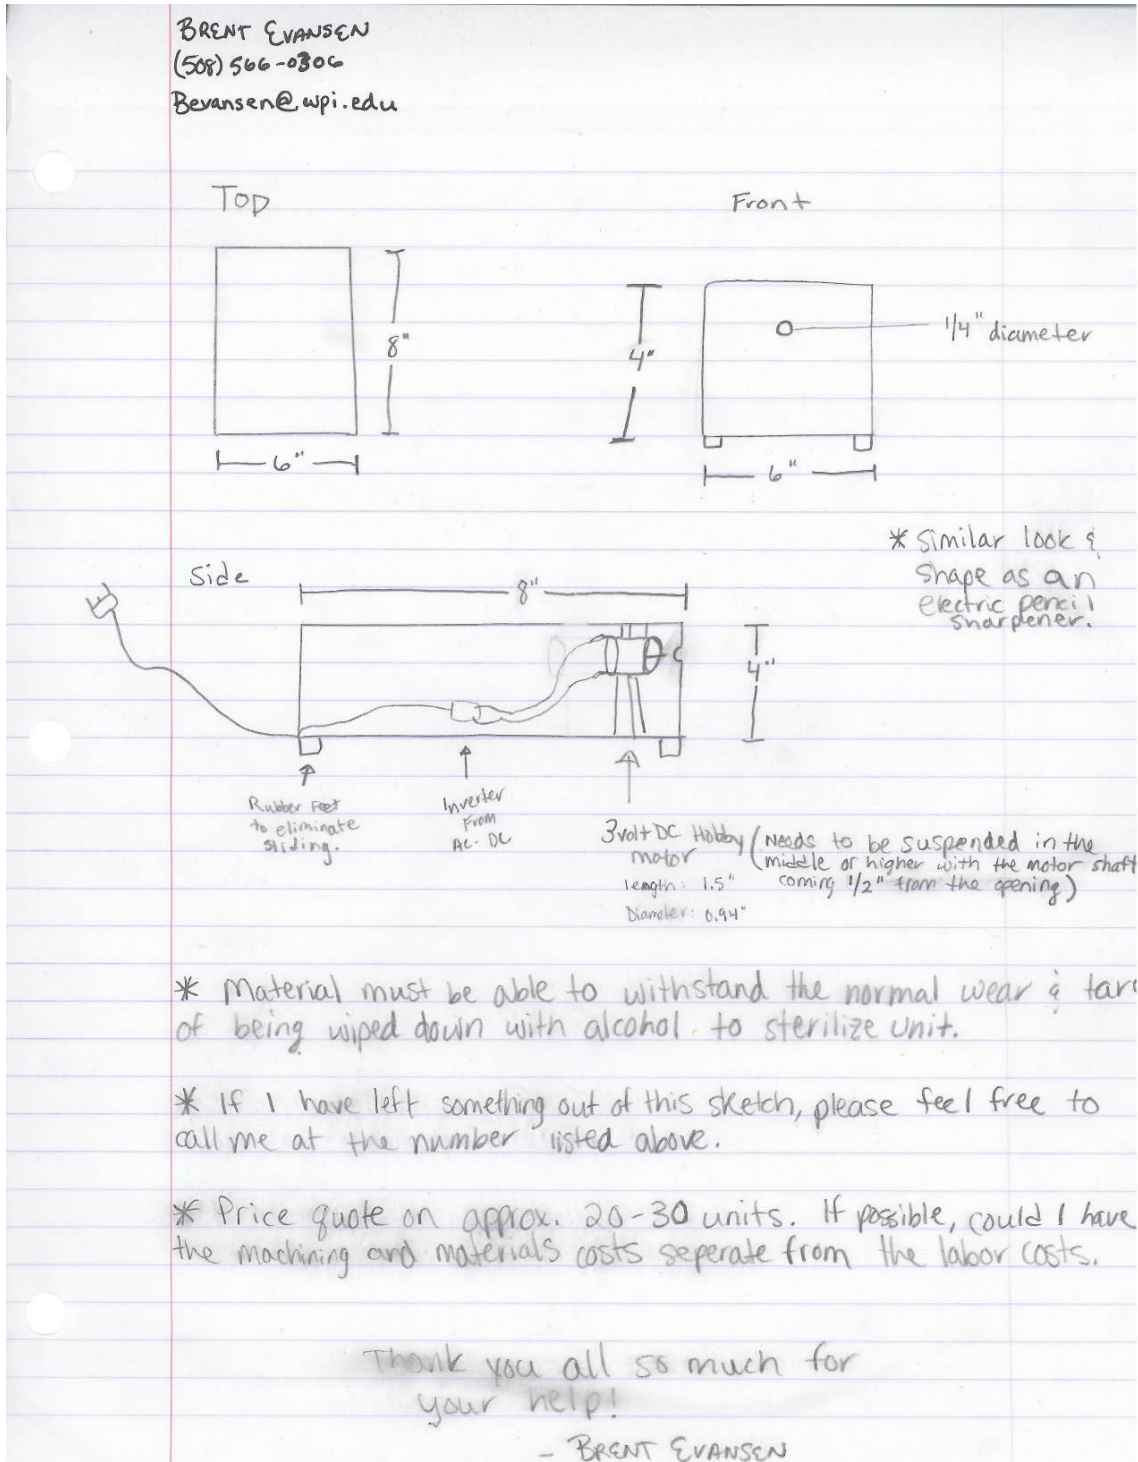 BRENT EVANSEN
(508) 566-0306
Bevansen@wpi.edu
Top
Front
8"
6"
4"
1/4" diameter
6"
* Similar look &
shape as an
electric pencil
sharpener.
Side
8"
4"
Rubber Feet
to eliminate
sliding.
Inverter
From
AC-DC
3volt DC Hobby
motor
length: 1.5"
Diameter: 0.94"
(Needs to be suspended in the
middle or higher with the motor shaft
coming 1/2" from the opening)
* Material must be able to withstand the normal wear & tare
of being wiped down with alcohol to sterilize unit.
* If I have left something out of this sketch, please feel free to
call me at the number listed above.
* Price quote on approx. 20-30 units. If possible, could I have
the machining and materials costs seperate from the labor costs.
Thank you all so much for
your help!
- BRENT EVANSEN